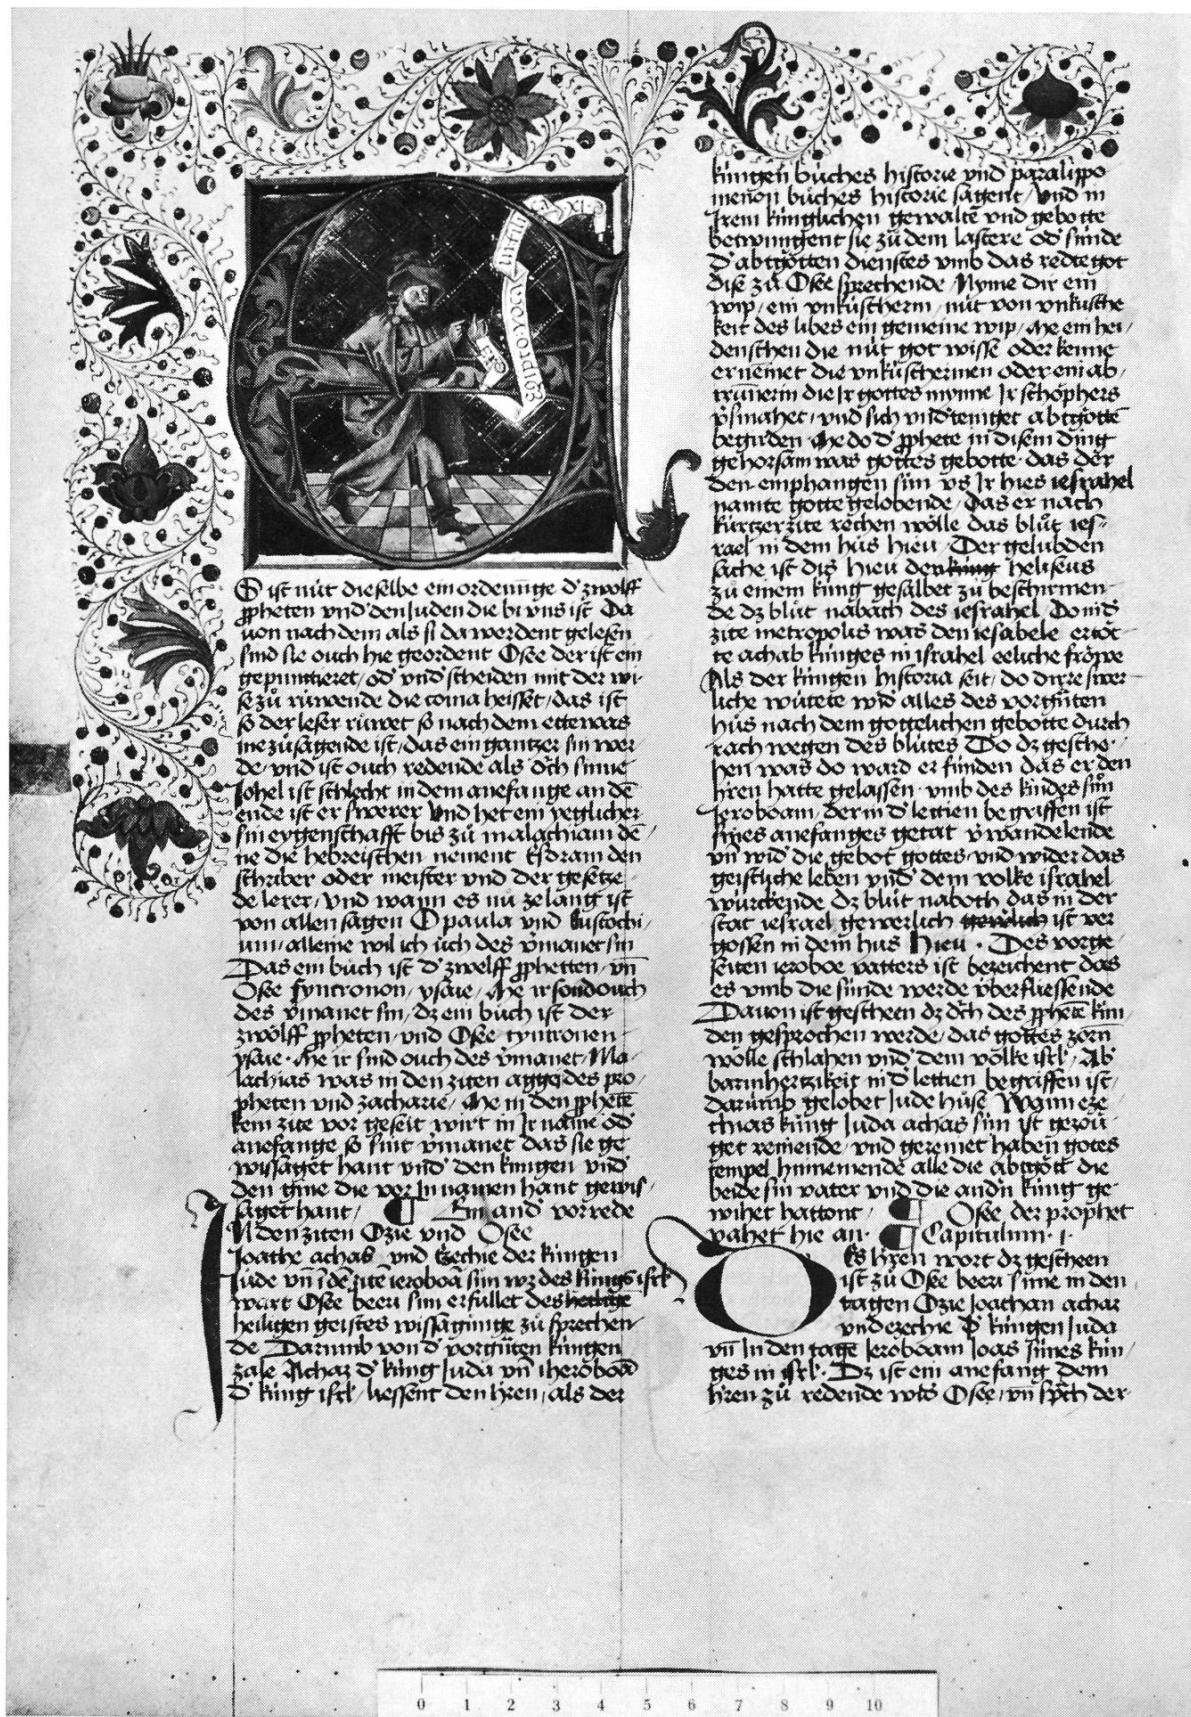 S ist nüt dieselbe ein ordenu̅nge d' zwolff
ꝓpheten vnd' den Juden die bi vns ist Da
uon nach dem als si da werdent gelesen
sind sie ouch hie geordent Osee der ist ein
gepunctieret / od' vnd'scheiden mit der wi-
se zů rüwende die coma heisset / das ist
so der leser rüwet so nach dem ettewas
me zů sagende ist / das ein gantzer sin wer
de / vnd ist ouch redende als dͨch sinne
Johel ist schlecht in dem anefange an de̅
ende ist er swerer vnd het ein yeglicher
sin eygenschafft bis zü malachiam de̅
ne die hebreischen nement Esdram den
schriber oder meister vnd der gesetze
de lerer / vnd wann es nů ze lang ist
von allen sagen O paula vnd Eustochi
um / alleine wil ich üch des v̍manet sin
Das ein büch ist d' zwelff ꝓphetten / vn̅
Osee syntronon / ysaie / Me ir sond ouch
des v̍manet sin / dz ein büch ist der
zwölff ꝓpheten / vnd Osee cyntronen
ysaie · Me ir sind ouch des v̍manet / Ma-
lachias was in den ziten aggei des pro-
pheten vnd zacharie / Me in den ꝓphete̅
kein zite vor geseit wirt in Ir name od'
anefange so sint v̍manet das sie ge
wissaget hant vnd' den künigen vnd'
den gine die vor In namen hant gewis /
saget hant / ¶ Ein and' vorrede
IN den ziten Ozie vnd Osee
Joathe achas vnd Ezechie der küngen
Jude vn̅ i̅ de̅ zite̅ ieroboa̅ sün wz des künigs isrl
wart Osee beeri sün erfüllet des heilige̅
heiligen geistes wissagünge zü sprechen-
de Darumb von d' vorgüten küngen
zale Achaz d' küng Juda vn̅ iheroboa̅
d' küng isrl / liessent den h̍ren / als der
küngen büches historie vnd paralippo
menon büches historie sagent / vnd in
Irem künglichen gewalte̅ vnd gebotte
betwungent sie zü dem lastere od' sünde
d' abtgötten dienstes vmb das redte got
dise zü Osee sprechende / Nyme dir ein
wip / ein vnküscherin / nüt von vnkusche
keit des libes ein gemeine wip / Me ein hei /
denschen die nüt got wisse oder kenne
er nemet die vnküscherinen oder ein ab-
trünerin die Ir gottes mynne Ir schöphers
v̍smahet / vnd sich vnd'teniget abtgötte̅
begirden Me do d' ꝓphete in disem ding
gehorsam was gottes gebotte / das der
den emphangen sün vs Ir hies iesrahel
namte gotte gelobende / Das er nach
kürtzer zite rechen wölle das blüt ies-
rael in dem hüs hieu / Der gelubden
sache ist dis hieu den küng heliseus
zü einem küng gesalbet zü beschirmen-
de dz blüt nabach des iesrahel Do in d'
zite metropolis was den iesabele ertöt-
te achab künges in israhel eeliche fröwe
Als der küngen historia seit / do dirre swer-
liche wütete wid' alles des vorgüten
hüs nach dem gottelichen gebotte durch
rach wegen des blütes Do dz gesche-
hen was do ward er fünden das er den
h̍ren hatte gelassen / vmb des kindes sün
Jeroboam / der in d' lettien begriffen ist
sines anefanges getat v̍wandelende
vn̅ wid' die gebot gottes / vnd wider das
geistliche leben vnd' dem volke israhel
würckende dz blüt naboth das in der
stat iesrael gewerlich gewrlich ist ver
gossen in dem hus hieu · Des vorge-
seiten ieroboe vatters ist bezeichent das
es vmb die sünde werde v̍berfliessende
Dauon ist gescheen dz dͨch des ꝓphete̅ kin /
den gesprochen werde / das gottes zorn
wölle schlahen vnd' dem völke isrl / Ab'
barmhertzikeit in d' lettien begriffen ist /
darümb gelobet Jude hüse Wann eze
chias küng Juda achas sün ist gezöü
get reinende / vnd gereinet haben gotes
tempel hinnemende alle die abtgött die
beide sin vater vnd die and'n küng ge-
wihet hattont / ¶ Osee der prophet
vahet hie an · ¶ Capitulum · j ·
Es h̍ren wort dz gescheen
ist zü Osee beeri sune in den
tagen Ozie Joathan achaz
vnd ezechie d' küngen Juda
vn̅ In den tage̅ Jeroboam Joas sünes kün-
ges in isrl · Dz ist ein anefang dem
h̍ren zü redende wid' Osee / vn̅ sp̍ch der
0 1 2 3 4 5 6 7 8 9 10